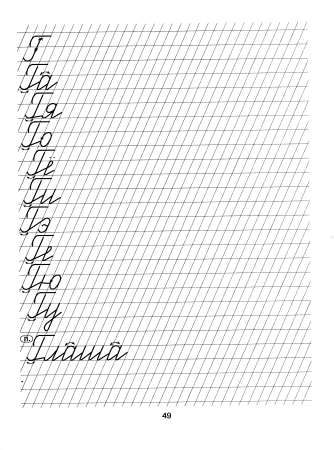 Г
Га
Гя
Го
Гё
Ги
Гэ
Ге
Гю
Гу
п. Глаша
49